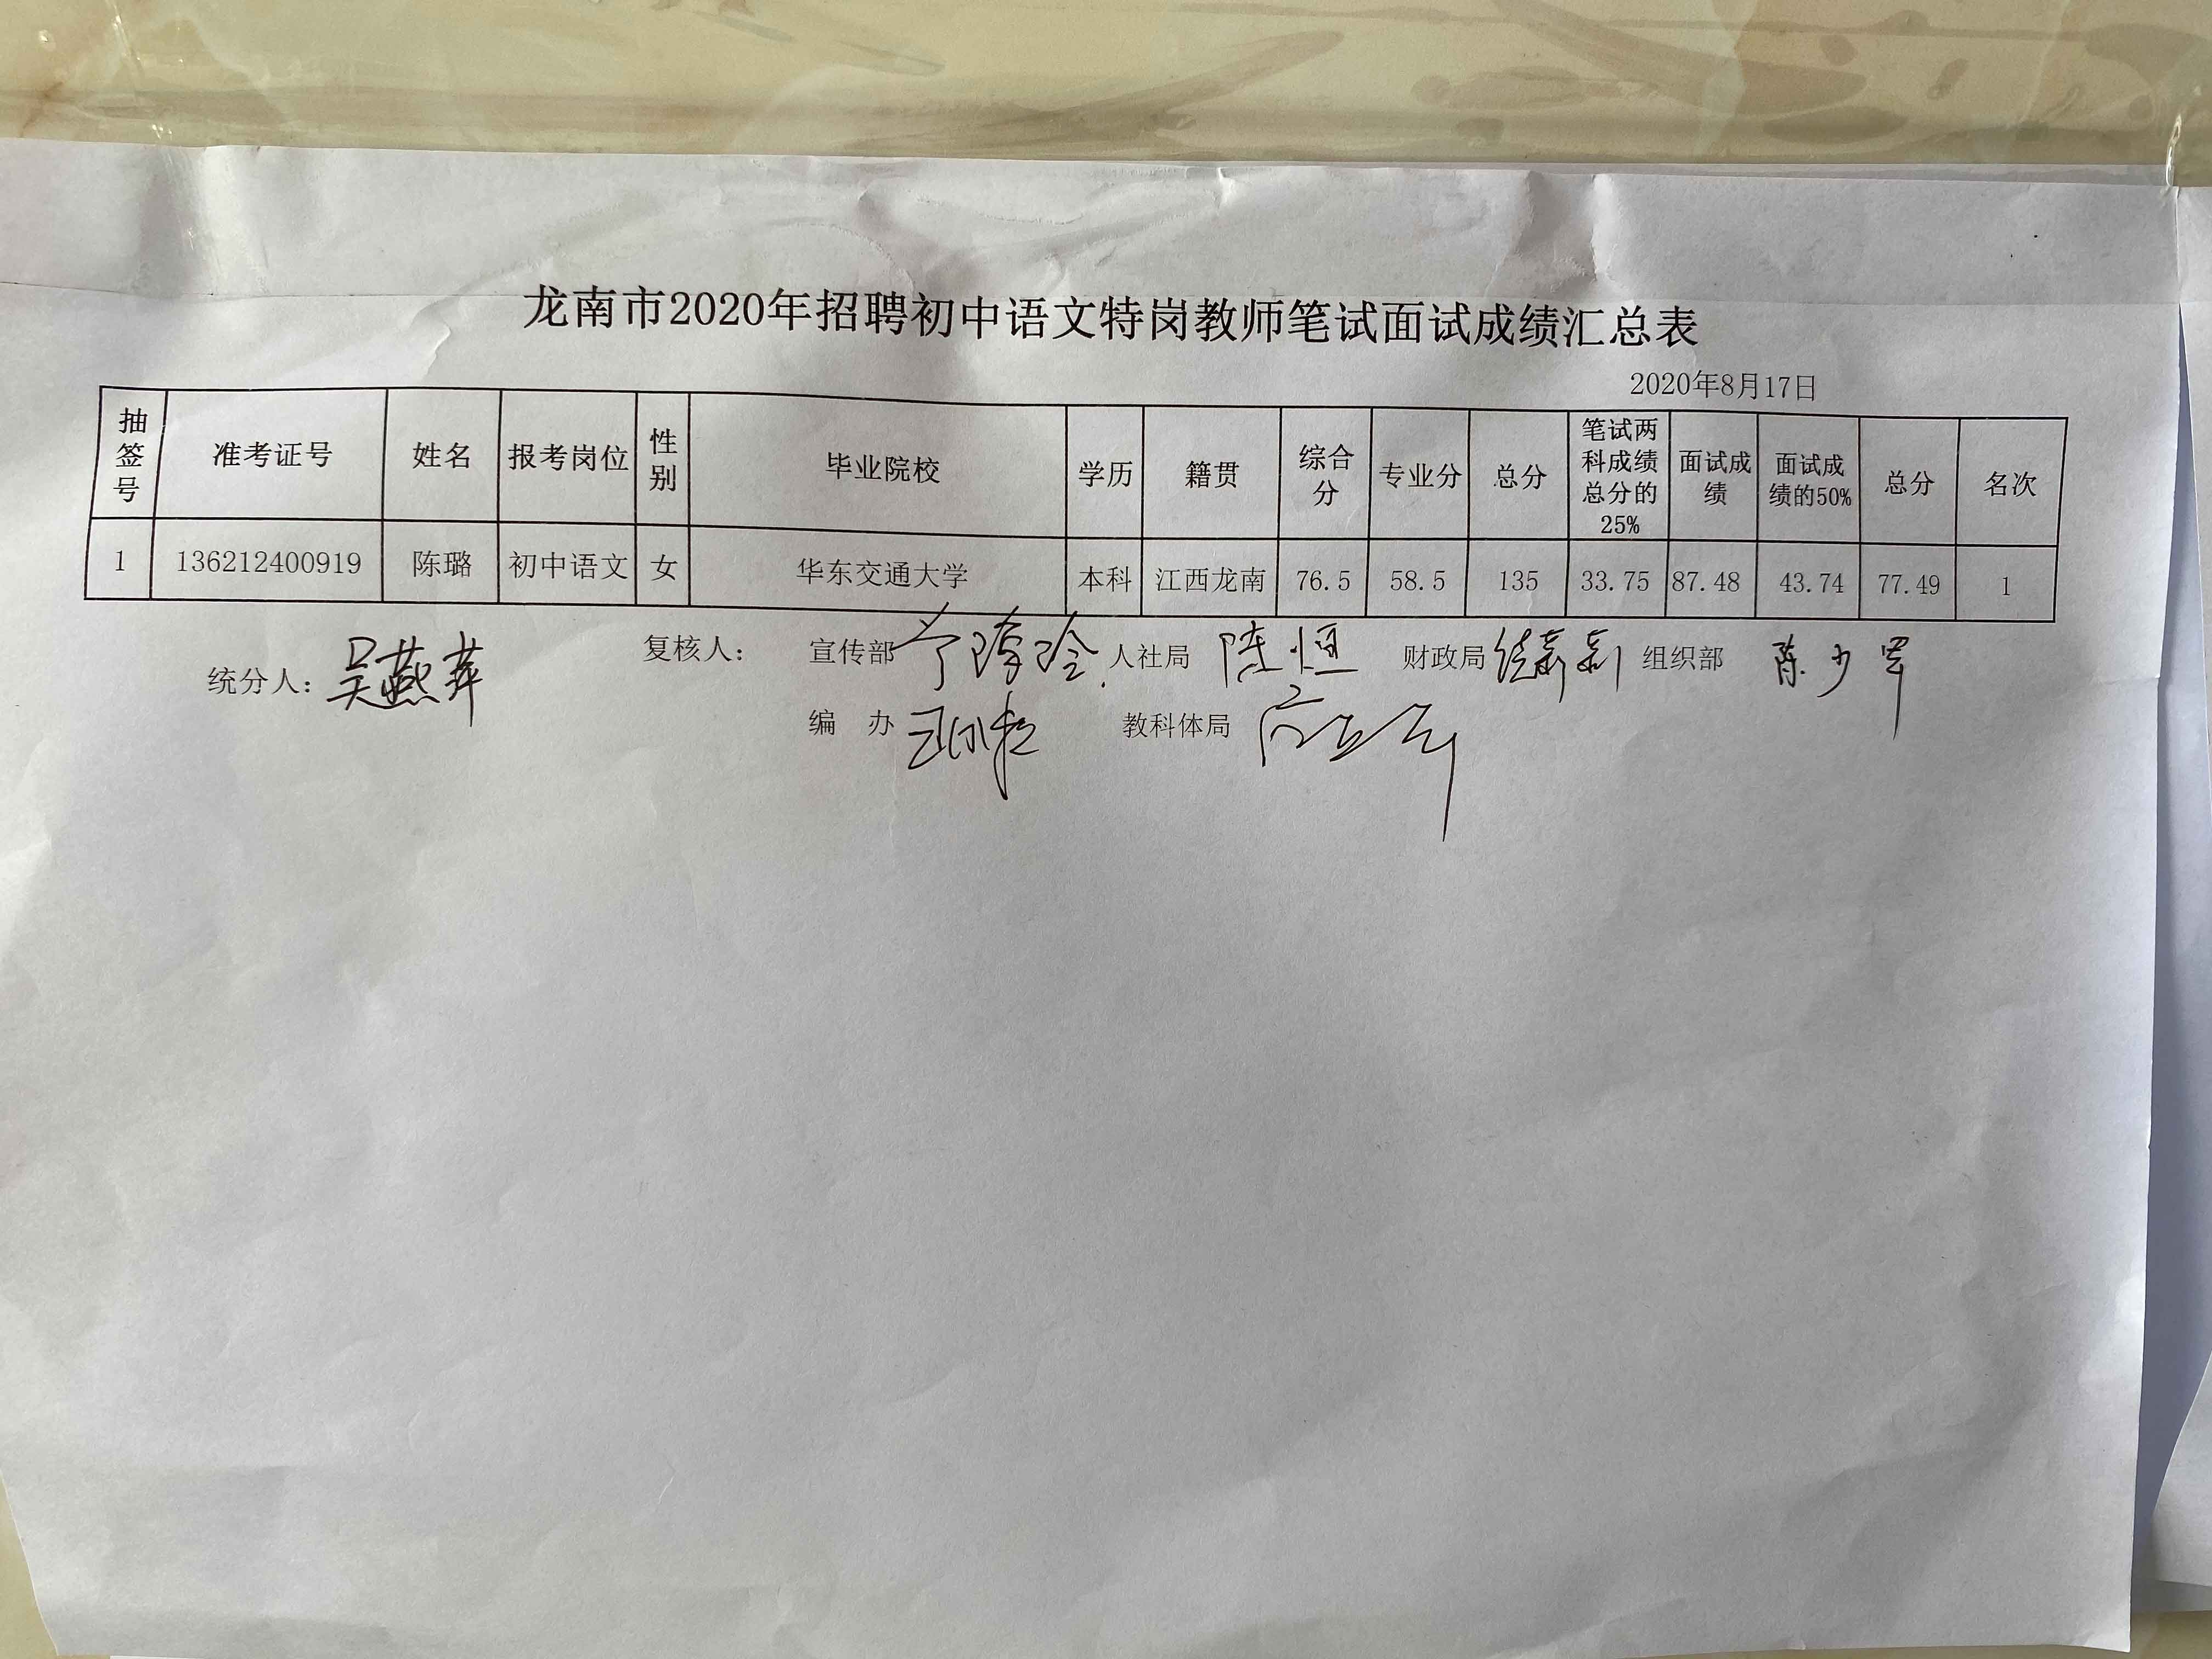 龙南市2020年招聘初中语文特岗教师笔试面试成绩汇总表
2020年8月17日
抽签号 准考证号 姓名 报考岗位 性别 毕业院校 学历 籍贯 综合分 专业分 总分 笔试两科成绩总分的25% 面试成绩 面试成绩的50% 总分 名次
1 136212400919 陈璐 初中语文 女 华东交通大学 本科 江西龙南 76.5 58.5 135 33.75 87.48 43.74 77.49 1
统分人：吴燕萍 复核人： 宣传部 人社局 陆恒 财政局 组织部 陈少军
编 办 教科体局